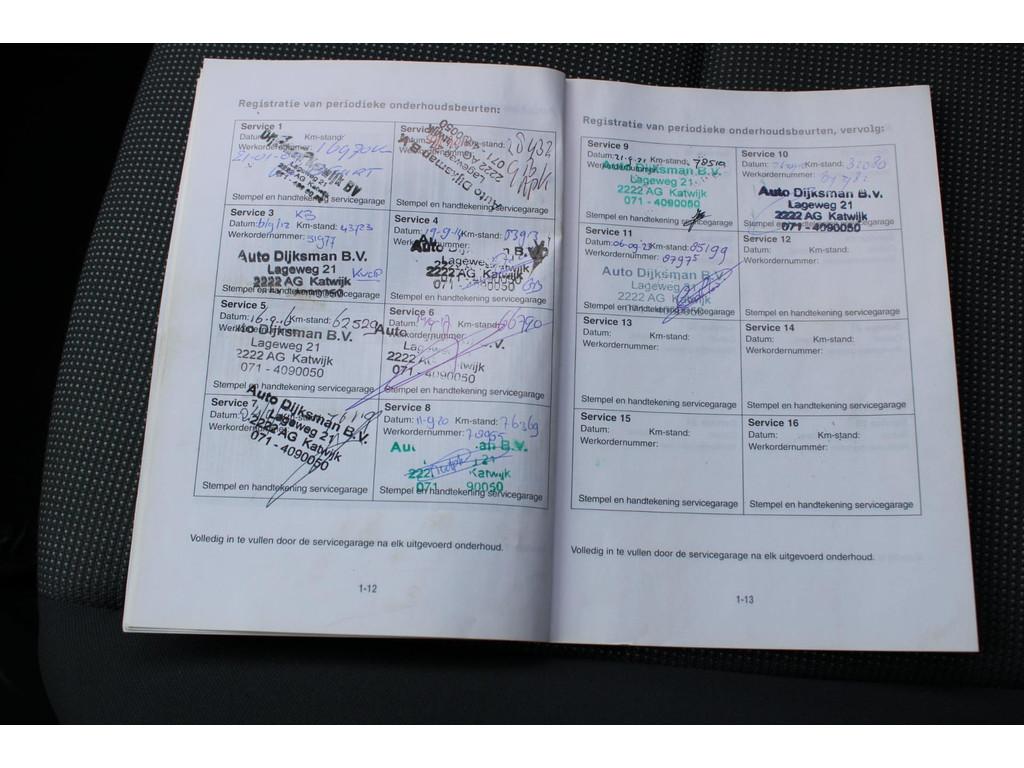 Registratie van periodieke onderhoudsbeurten:
Service 1
Datum: Km-stand:
Werkordernummer:
Stempel en handtekening servicegarage
Service
28432
Auto Dijksman B.V.
Lageweg 21
2222 AG
071 - 4090050
Stempel en handtekening servicegarage
Service 3 KB
Datum: Km-stand: 43723
Werkordernummer: 31977
Auto Dijksman B.V.
Lageweg 21
2222 AG Katwijk
Stempel en handtekening servicegarage
Service 4
Datum: 19-9-14 Km-stand:
Werkordernummer:
Auto Dijksman B.V.
Lageweg
2222 AG Katwijk
071 - 4090050
Stempel en handtekening servicegarage
Service 5
Datum: 16-9-16 Km-stand: 62529
Werkordernummer:
Auto Dijksman B.V.
Lageweg 21
2222 AG Katwijk
071 - 4090050
Stempel en handtekening servicegarage
Service 6
Datum: Km-stand: 66720
Werkordernummer:
Auto
2222 A Katwijk
071 - 4090050
Stempel en handtekening servicegarage
Service 7
Datum:
Werkordernummer:
Auto Dijksman B.V.
Lageweg 21
2222 AG Katwijk
071 - 4090050
Stempel en handtekening servicegarage
Service 8
Datum: 11-9-20 Km-stand: 76369
Werkordernummer: 78955
Au an B.V.
222 21 Katwijk
071 90050
Stempel en handtekening servicegarage
Volledig in te vullen door de servicegarage na elk uitgevoerd onderhoud.
1-12
Registratie van periodieke onderhoudsbeurten, vervolg:
Service 9
Datum: 21-9-21 Km-stand: 78519
Werkordernummer:
Auto Dijksman B.V.
Lageweg 21
2222 AG Katwijk
071 - 4090050
Stempel en handtekening servicegarage
Service 10
Datum: Km-stand:
Werkordernummer:
Auto Dijksman B.V.
Lageweg 21
2222 AG Katwijk
071 - 4090050
Stempel en handtekening servicegarage
Service 11
Datum: 06-09-23 Km-stand: 85199
Werkordernummer: 87975
Auto Dijksman B.V.
Lageweg 21
2222 AG Katwijk
Stempel en handtekening servicegarage
Service 12
Datum: Km-stand:
Werkordernummer:
Stempel en handtekening servicegarage
Service 13
Datum: Km-stand:
Werkordernummer:
Stempel en handtekening servicegarage
Service 14
Datum: Km-stand:
Werkordernummer:
Stempel en handtekening servicegarage
Service 15
Datum: Km-stand:
Werkordernummer:
Stempel en handtekening servicegarage
Service 16
Datum: Km-stand:
Werkordernummer:
Stempel en handtekening servicegarage
Volledig in te vullen door de servicegarage na elk uitgevoerd onderhoud.
1-13